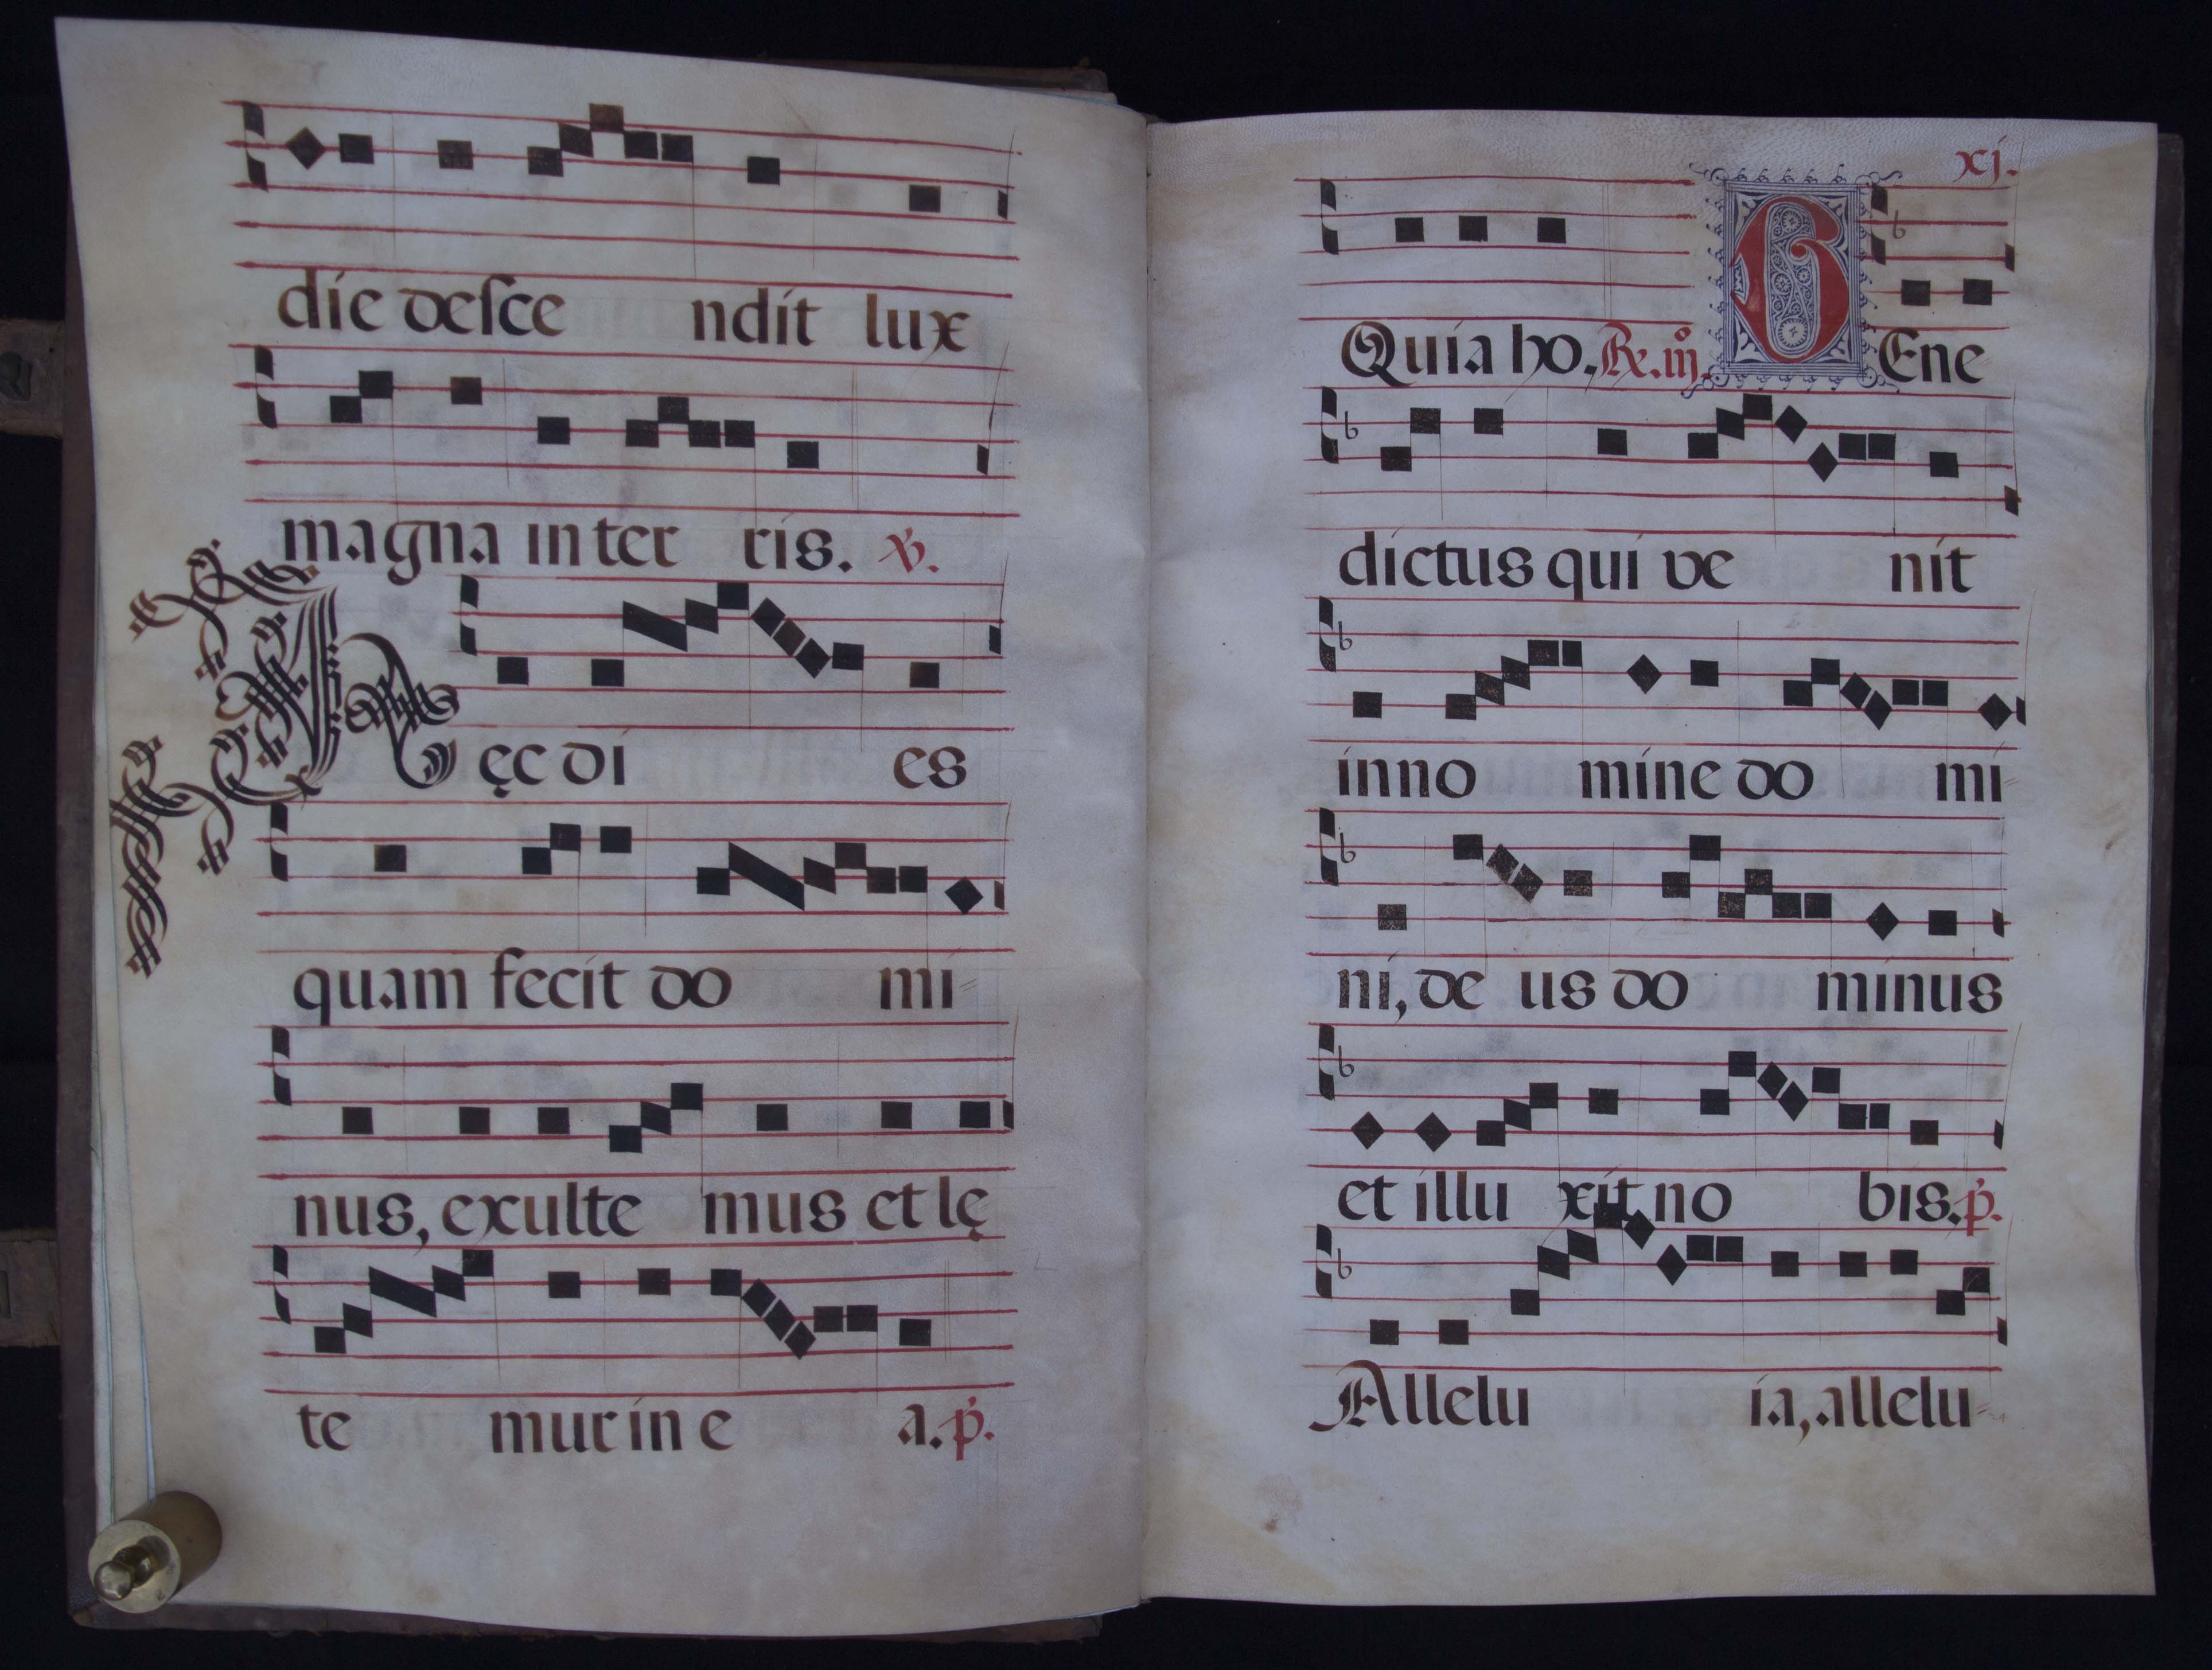 die desce ndit lux
magna in ter ris. ℣.
Hęc di es
quam fecit do mi=
nus, exulte mus et lę
te mur in e a. p̄.
xj.
Quia ho. Rx. iij. BEne
dictus qui ve nit
inno mine do mi=
ni, de us do minus
et illu xit no bis. p̄.
Allelu ia, allelu=